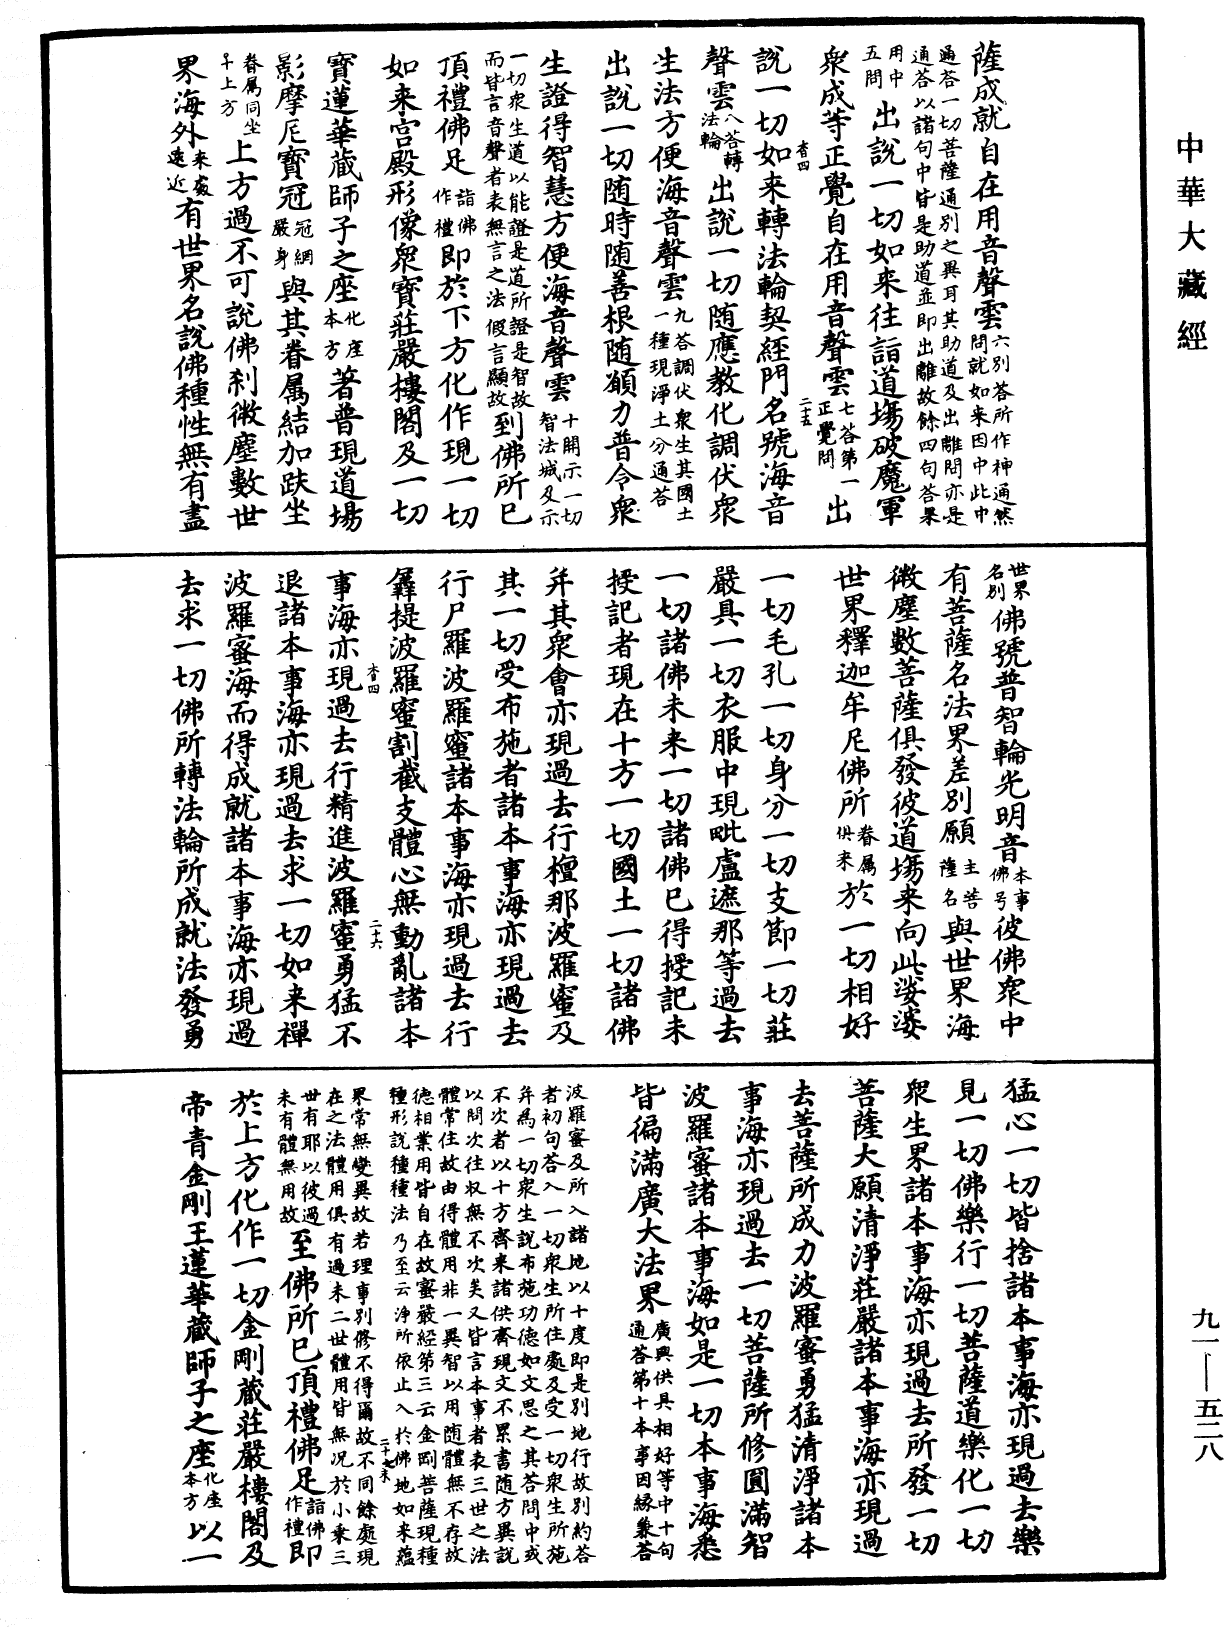 中華大藏經
薩成就自在用音聲雲六別荅所作神通然問就如来因中此中
遍荅一切菩薩通別之異耳其助道及出離問亦是
通荅以諸句中皆是助道並即出離故餘四句荅果
用中五問出說一切如来往詣道場破魔軍
衆成等正覺自在用音聲雲七荅第一正覺問出
說一切如来轉法輪契經門名號海音
聲雲八荅轉法輪出說一切随應教化調伏衆
生法方便海音聲雲九荅調伏衆生其國土一種現淨土分通荅
出說一切随時随善根随願力普令衆
生證得智慧方便海音聲雲十開示一切智法城及示
一切衆生道以能證是道所證是智故而皆言音聲者表無言之法假言顯故到佛所已
頂禮佛足詣佛作禮即於下方化作現一切
如来宮殿形像衆寶莊嚴樓閣及一切
寶蓮華藏師子之座化座本方著普現道場
影摩尼寶冠冠網嚴身與其眷属結加趺坐
眷属同坐上方上方過不可說佛刹微塵數世
界海外来處遠近有世界名說佛種性無有盡
世界名別佛號普智輪光明音本事佛号彼佛衆中
有菩薩名法界差別願主菩薩名與世界海
微塵數菩薩俱發彼道場来向此娑婆
世界釋迦牟尼佛所眷属俱来於一切相好
一切毛孔一切身分一切支節一切莊
嚴具一切衣服中現毗盧遮那等過去
一切諸佛未来一切諸佛已得授記未
授記者現在十方一切國土一切諸佛
并其衆會亦現過去行檀那波羅蜜及
其一切受布施者諸本事海亦現過去
行尸羅波羅蜜諸本事海亦現過去行
羼提波羅蜜割截支體心無動亂諸本
事海亦現過去行精進波羅蜜勇猛不
退諸本事海亦現過去求一切如来禪
波羅蜜海而得成就諸本事海亦現過
去求一切佛所轉法輪所成就法發勇
猛心一切皆捨諸本事海亦現過去樂
見一切佛樂行一切菩薩道樂化一切
衆生界諸本事海亦現過去所發一切
菩薩大願清淨莊嚴諸本事海亦現過
去菩薩所成力波羅蜜勇猛清淨諸本
事海亦現過去一切菩薩所修圓滿智
波羅蜜諸本事海如是一切本事海悉
皆徧滿廣大法界廣興供具相好等中十句通荅第十本事因緣兼荅
波羅蜜及所入諸地以十度即是別地行故別約荅
者初句荅入一切衆生所住處及受一切衆生所施
并為一切衆生說布施功德如文思之其荅問中或
不次者以十方齊来諸供齊現文不累書随方異說
以問次往収無不次矣又皆言本事者表三世之法
體常住故由得體用非一異智以用随體無不存故
德相業用皆自在故蜜嚴經第三云金剛菩薩現種
種形說種種法乃至云淨所依止入於佛地如来蘊
界常無變異故若理事別修不得爾故不同餘處現
在之法體用俱有過未二世體用皆無况於小乘三
世有耶以彼過未有體無用故至佛所已頂禮佛足詣佛作禮即
於上方化作一切金剛藏莊嚴樓閣及
帝青金剛王蓮華藏師子之座化座本方以一
九一—五二八